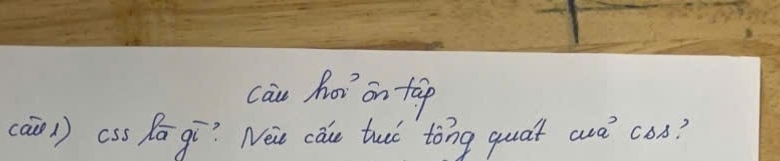 Câu hỏi ôn tập
câu 1) css là gì? Nêu cấu trúc tổng quát cuả css?